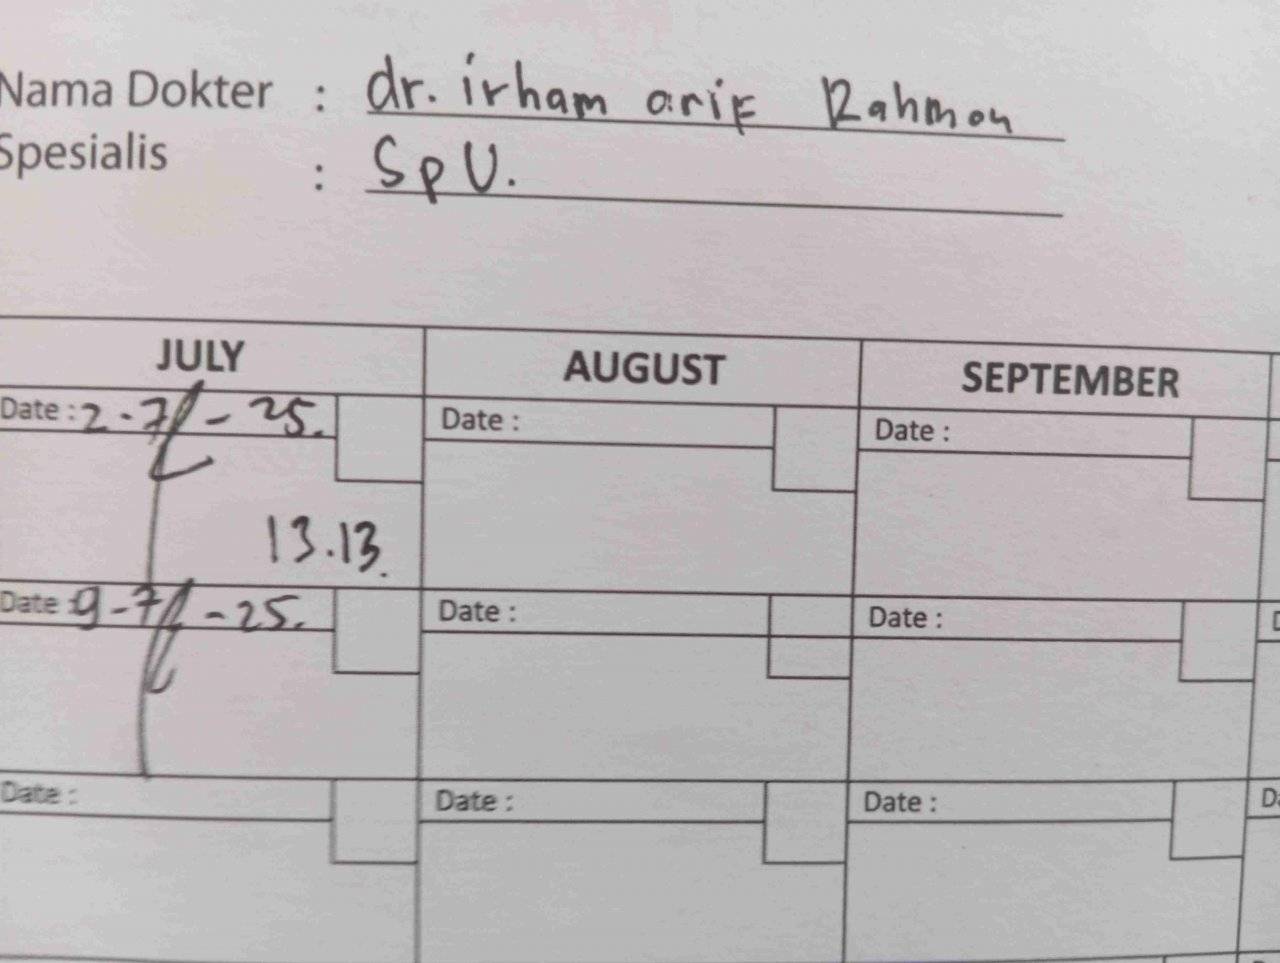 Nama Dokter : dr. irham arif Rahman
Spesialis : Sp U.
JULY AUGUST SEPTEMBER
Date : 2-7-25. Date : Date :
13.13.
Date : 9-7-25. Date : Date :
Date : Date : Date :